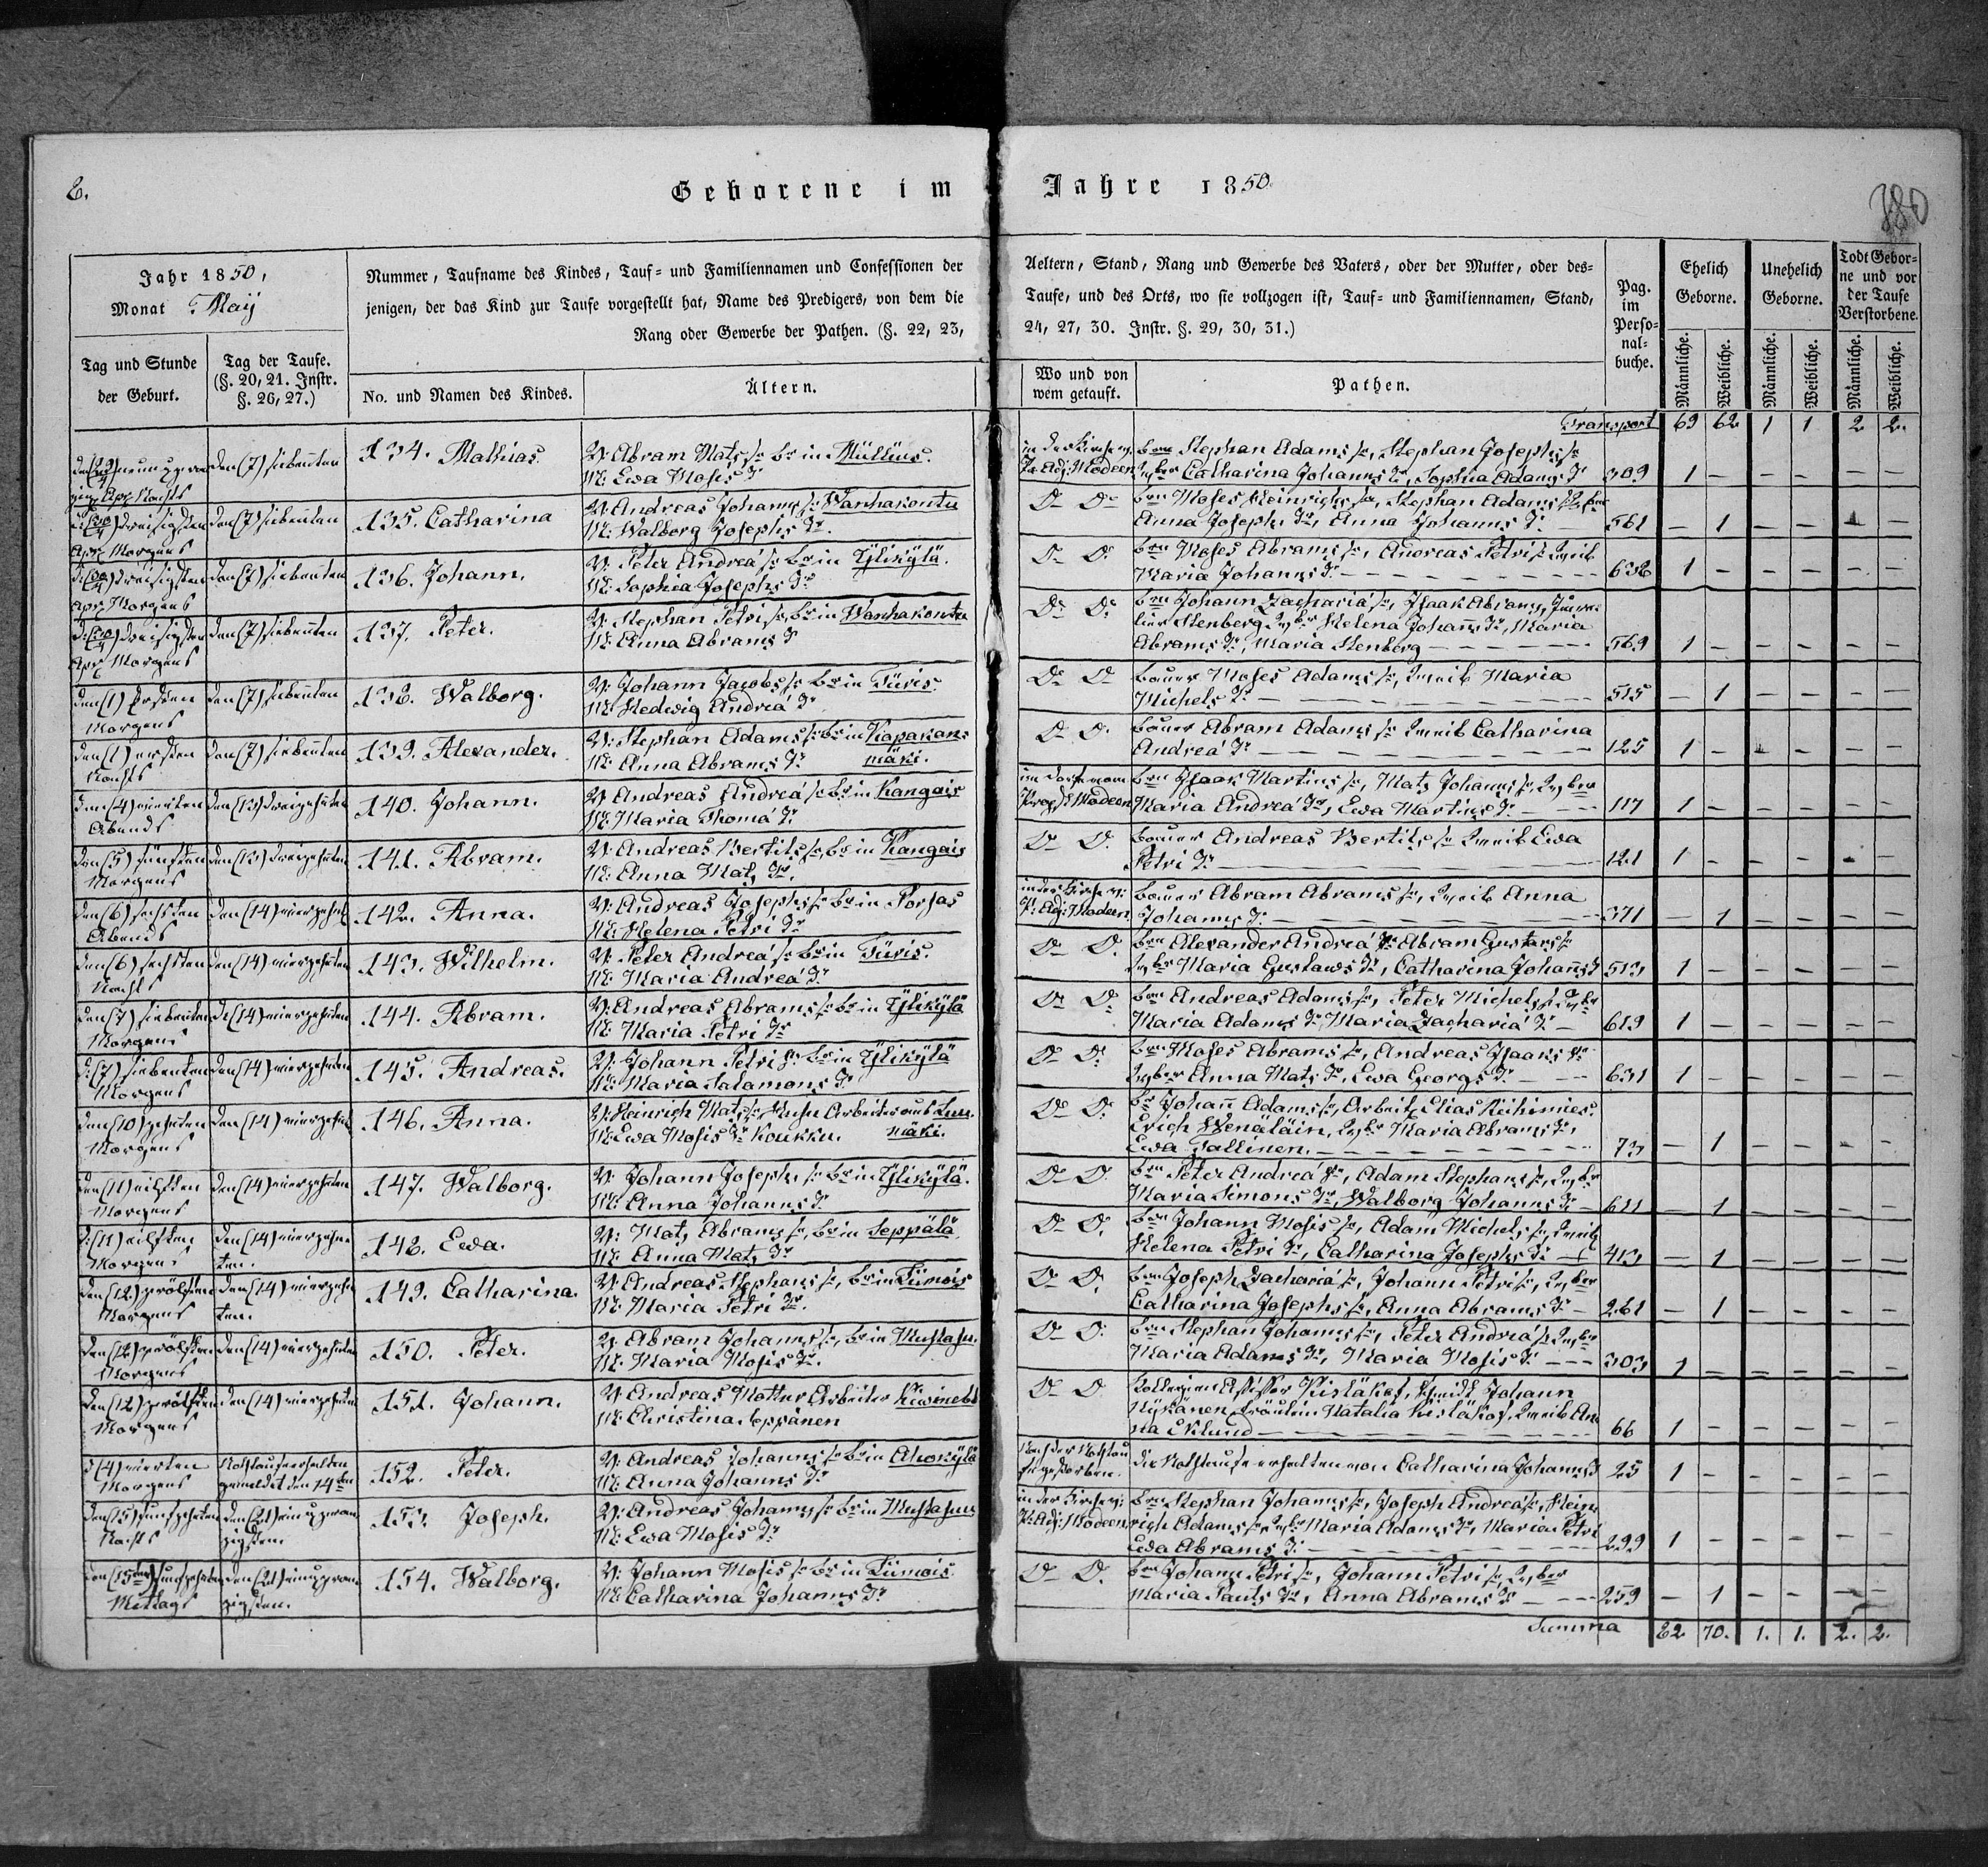 8.
Geborene im Jahre 1850.
380
Jahr 1850,
Monat Maij
Nummer, Taufname des Kindes, Tauf- und Familiennamen und Confessionen der Aeltern, Stand, Rang und Gewerbe des Vaters, oder der Mutter, oder des-
jenigen, der das Kind zur Taufe vorgestellt hat, Name des Predigers, von dem die Taufe, und des Orts, wo sie vollzogen ist, Tauf- und Familiennamen, Stand,
Rang oder Gewerbe der Pathen. (§. 22, 23, 24, 27, 30. Instr. §. 29, 30, 31.)
Pag. im Perso-nal-buche.
Ehelich Geborne.
Unehelich Geborne.
Todt Gebor-ne und vor der Taufe Verstorbene.
Tag und Stunde der Geburt.
Tag der Taufe. (§. 20, 21. Instr. §. 26, 27.)
No. und Namen des Kindes.
Ältern.
Wo und von wem getauft.
Pathen.
Männliche. Weibliche. Männliche. Weibliche. Männliche. Weibliche.
Transport 69 62 1 1 2 2.
den (7) siebenten
134. Mathias.
V: Abram Mats in Müllüs.
M: Ewa Mosis
in der Kirche v:
P: Adj: Modeen
Stephan Adams, Stephan Josephs
Catharina Johanns, Sophia Adams 309 1 – – – – –
Apr. Morgens
den (7) siebenten
135. Catharina
V: Andreas Johanns Wanhakontu
M: Walborg Josephs
Moses Heinrichs, Stephan Adams
Anna Josephs, Anna Johanns 561 – 1 – – – –
Apr. Morgens
den (7) siebenten
136. Johann.
V: Peter Andreä in Ylikylä.
M: Sophia Josephs
Moses Abrams, Andreas Petri
Maria Johanns 638 1 – – – – –
Apr. Morgens
den (7) siebenten
137. Peter.
V: Stephan Petri in Wanhakontu
M: Anna Abrams
Johann Zachariä, Isaak Abrams,
Stenberg Helena Johanns, Maria
Abrams, Maria Stenberg 569 1 – – – – –
den (1) ersten
Morgens
den (7) siebenten
138. Walborg.
V: Johann Jacobs in Türis.
M: Hedwig Andreä
Bauer Moses Adams, Maria
Michels 515 – 1 – – – –
den (1) ersten
Nachts
den (7) siebenten
139. Alexander.
V: Stephan Adams in Kapakan-
M: Anna Abrams mäki.
Bauer Abram Adams Catharina
Andreä 125 1 – – – – –
den (4) vierten
Abends
den (13) dreizehnten
140. Johann.
V: Andreas Andreä in Kangais
M: Maria Thomä
im Dorfe vom
Propst Modeen
Isaak Martins, Mats Johanns
Maria Andreä, Ewa Martins 117 1 – – – – –
den (5) fünften
Morgens
den (13) dreizehnten
141. Abram.
V: Andreas Bertils in Kangais
M: Anna Mats
Bauer Andreas Bertils Ewa
Petri 121 1 – – – – –
den (6) sechsten
Abends
den (14) vierzehnten
142. Anna.
V: Andreas Josephs in Porsas
M: Helena Petri
in der Kirche v:
P: Adj: Modeen.
Bauer Abram Abrams, Anna
Johanns 371 – 1 – – – –
den (6) sechsten
Nachts
den (14) vierzehnten
143. Wilhelm.
V: Peter Andreä in Türis.
M: Maria Andreä
Alexander Andreä Abram Gustavs
Maria Gustaws, Catharina Johanns 513 1 – – – – –
den (7) siebenten
Morgens
(14) vierzehnten
144. Abram.
V: Andreas Abrams in Ylikylä
M: Maria Petri
Andreas Adams, Peter Michels
Maria Adams, Maria Zachariä 619 1 – – – – –
d: (7) siebenten
Morgens
den (14) vierzehnten
145. Andreas.
V: Johann Petri in Ylikylä
M: Maria Salamons
Moses Abrams, Andreas Isaaks
Anna Mats, Ewa Georgs 631 1 – – – – –
den (10) zehnten
Morgens
den (14) vierzehnten
146. Anna.
V: Heinrich Mats Arbeiter aus Lin-
M: Ewa Mosis Koukku. mäki.
Johann Adams, Arbeit. Elias
Erich Wenäläin, Maria Abrams,
Ewa Tallinen. 73 – 1 – – – –
den (11) eilften
Morgens
den (14) vierzehnten
147. Walborg.
V: Johann Josephs in Ylikylä.
M: Anna Johanns
Peter Andreä, Adam Stephans
Maria Simons, Walborg Johanns 611 – 1 – – – –
d: (11) eilften
Morgens
den (14) vierzehn-
ten.
148. Ewa.
V: Mats Abrams in Seppälä
M: Anna Mats
Johann Mosis, Adam Michels
Helena Petri, Catharina Josephs 413 – 1 – – – –
den (12) zwölften
Morgens
den (14) vierzehn-
ten.
149. Catharina.
V: Andreas Stephans, in Liimois
M: Maria Petri
Joseph Zachariä, Johann Petri
Catharina Josephs, Anna Abrams 261 – 1 – – – –
den (12) zwölften
Morgens
den (14) vierzehnten
150. Peter.
V: Abram Johanns, in Mustasu.
M: Maria Mosis
Stephan Johanns, Peter Andreä
Maria Adams, Maria Mosis 303 1 – – – – –
den (12) zwölften
Morgens
den (14) vierzehnten
151. Johann.
V: Andreas Arbeiter Kiwineb
M: Christina Seppänen
Kollegien Assessor Johann
Nykänen, Fräulein Natalia An-
na Eklund 66 1 – – – – –
d (4) vierten
Morgens
Nothtaufe erhalten
gemeldet den 14
152. Peter.
V: Andreas Johanns in Ahokylä
M: Anna Johanns
Nach der Nothtau-
fe gestorben.
die Nothtaufe erhalten von Catharina Johanns 25 1 – – – – –
den (15) funfzehnten
Nachts
den (21) einundzwan-
zigsten.
153. Joseph.
V: Andreas Johanns in Mustasuu
M: Ewa Mosis
in der Kirche v:
P: Adj: Modeen.
Stephan Johanns, Joseph Andreä, Hein-
rich Adams, Maria Adams, Maria Petri
Ewa Abrams 299 1 – – – – –
den (15) funfzehnten
Mittags
den (21) einundzwan-
zigsten.
154. Walborg.
V: Johann Mosis in Liimois.
M: Catharina Johanns
Johann Petri, Johann Petri
Maria Pauls, Anna Abrams 259 – 1 – – – –
Summa 82 70. 1. 1. 2. 2.